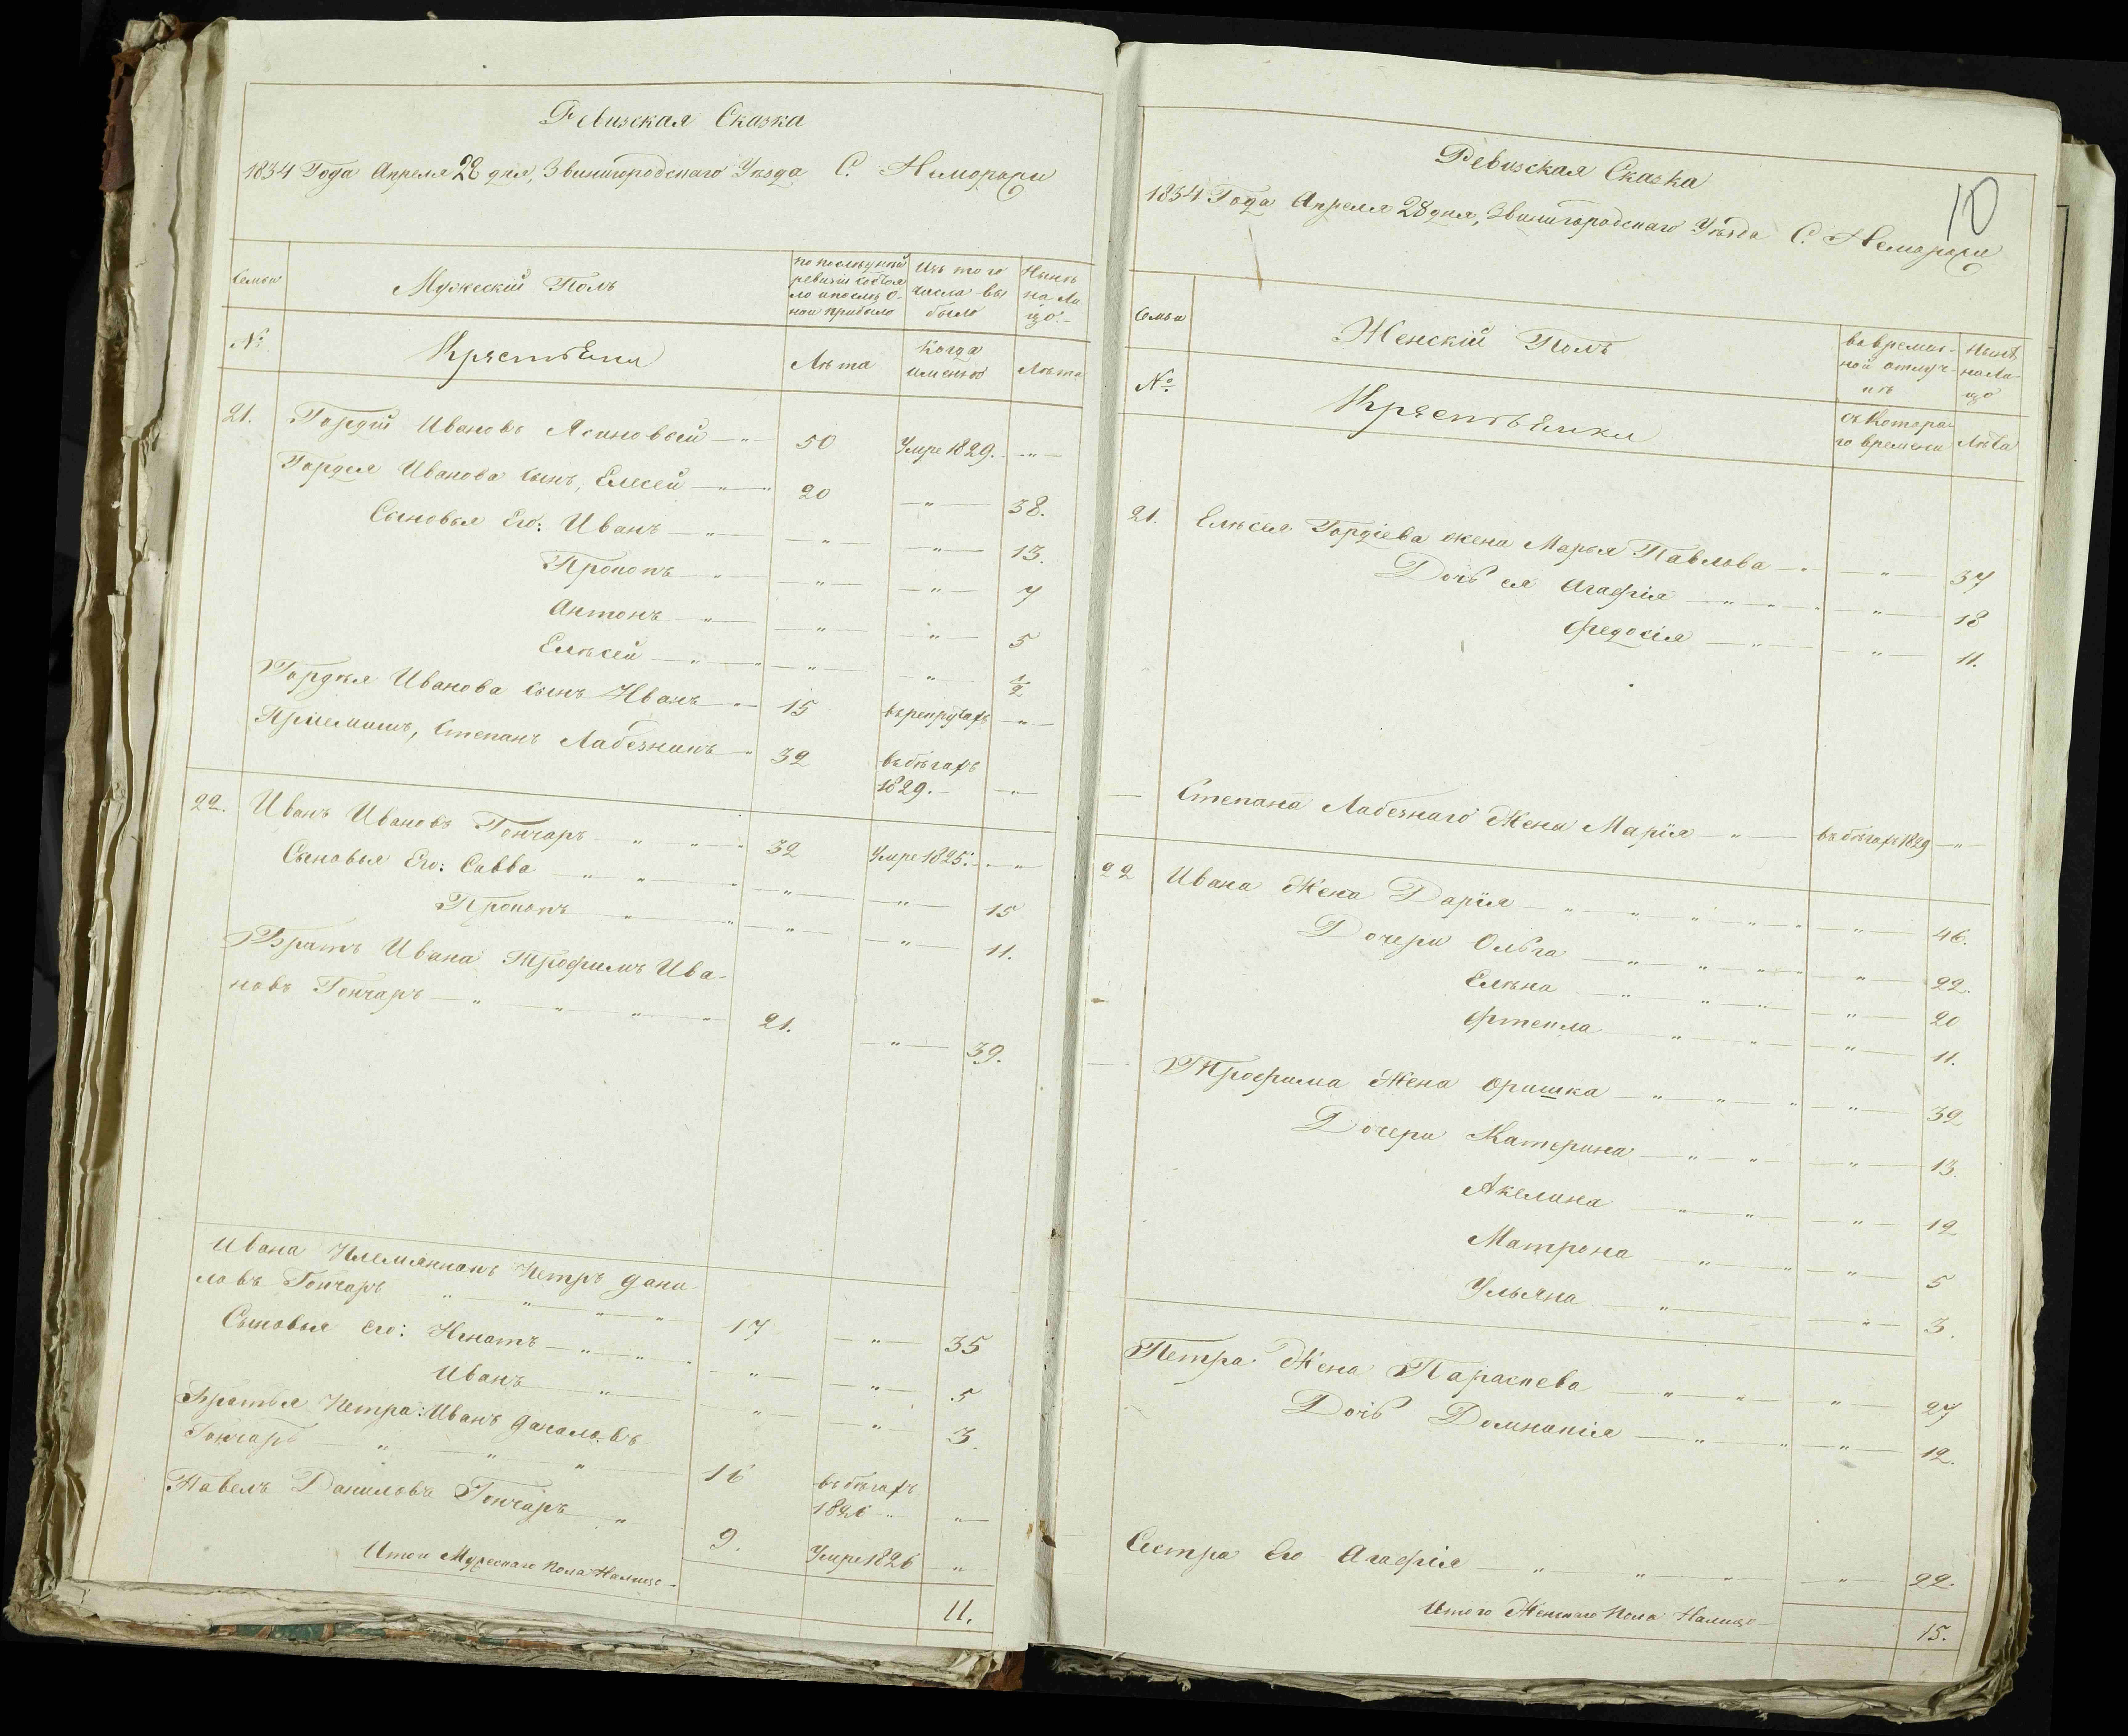 Ревизская Сказка
1834 Года Апреля 28 дня, Звинигородскаго Уезда С. Неморожи
Семьи
Мужеский Полъ
по последней ревизии состояло и после оной прибыло
Изъ того числа выбыло
Ныне на лицо
№
Крестьяни
Лета
Когда именно
Лета
21. Гордій Ивановъ Ясиновый 50 Умре 1829.
Гордея Иванова сынъ, Елисей 20 38.
Сыновья Его: Иванъ 13.
Прокопъ 7
Антонъ 5
Елисей 1/2
Гордея Иванова сынъ Иванъ 15 въ рекрутахъ
Приемышъ, Степанъ Лабезникъ 32 въ бегахъ
1829.
22. Иванъ Ивановъ Гончаръ 32 Умре 1825.
Сыновья Его: Савва 15
Прокопъ 11.
Братъ Ивана Трофимъ Ива-
новъ Гончаръ 21. 39.
Ивана Племянникъ Петръ Дани-
ловъ Гончаръ 17 35
Сыновья его: Игнатъ 5
Иванъ 3.
Братья Петра: Иванъ Даниловъ
Гончаръ 16 въ бегахъ
1826
Павелъ Даниловъ Гончаръ 9. Умре 1826
Итого Мужескаго пола Налицо 11.
10
Ревизская Сказка
1834 Года Апреля 28 дня, Звинигородскаго Уезда С. Неморожи
Семьи
Женскій Полъ
во времен-
ной отлуч-
ке
Ныне
на ли-
цо
№
Крестьянки
съ котора-
го времени
Лета
21. Елисея Гордіева жена Марья Павлова 37
Дочь ея Агафія 18
Федосія 11.
Степана Лабезнаго Жена Марія въ бегахъ 1829
22 Ивана Жена Дарія 46.
Дочери Ольга 22.
Елена 20
Фтекла 11.
Трофима Жена Оришка 39
Дочери Катерина 13.
Акелина 12
Матрона 5
Ульяна 3.
Петра Жена Параскева 27
Дочь Домникія 12.
Сестра Его Агафія 22.
Итого Женскаго пола Налицо 15.